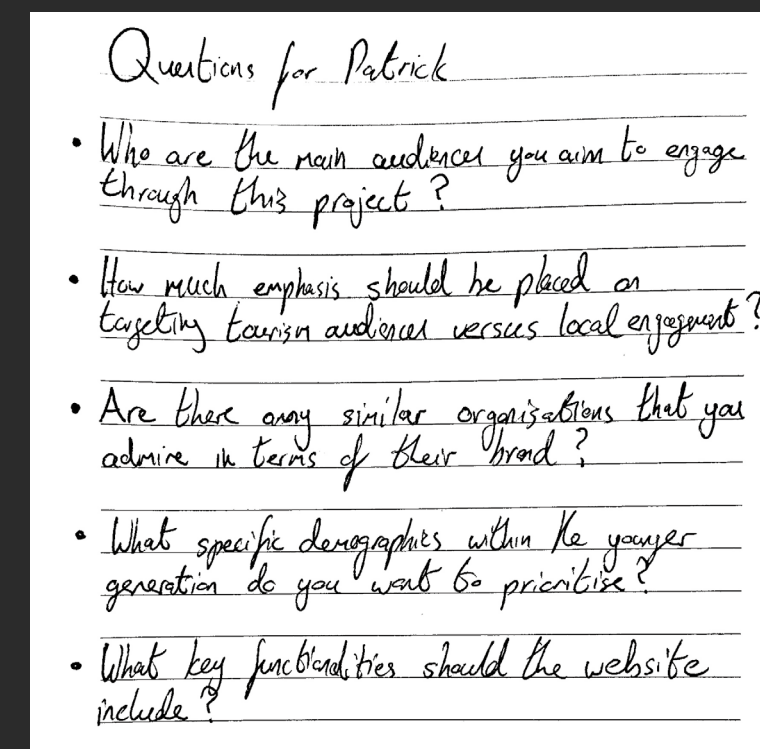 Questions for Patrick
• Who are the main audiences you aim to engage
through this project?
• How much emphasis should be placed on
targeting tourism audiences versus local engagement?
• Are there any similar organisations that you
admire in terms of their brand?
• What specific demographics within the younger
generation do you want to prioritise?
• What key functionalities should the website
include?